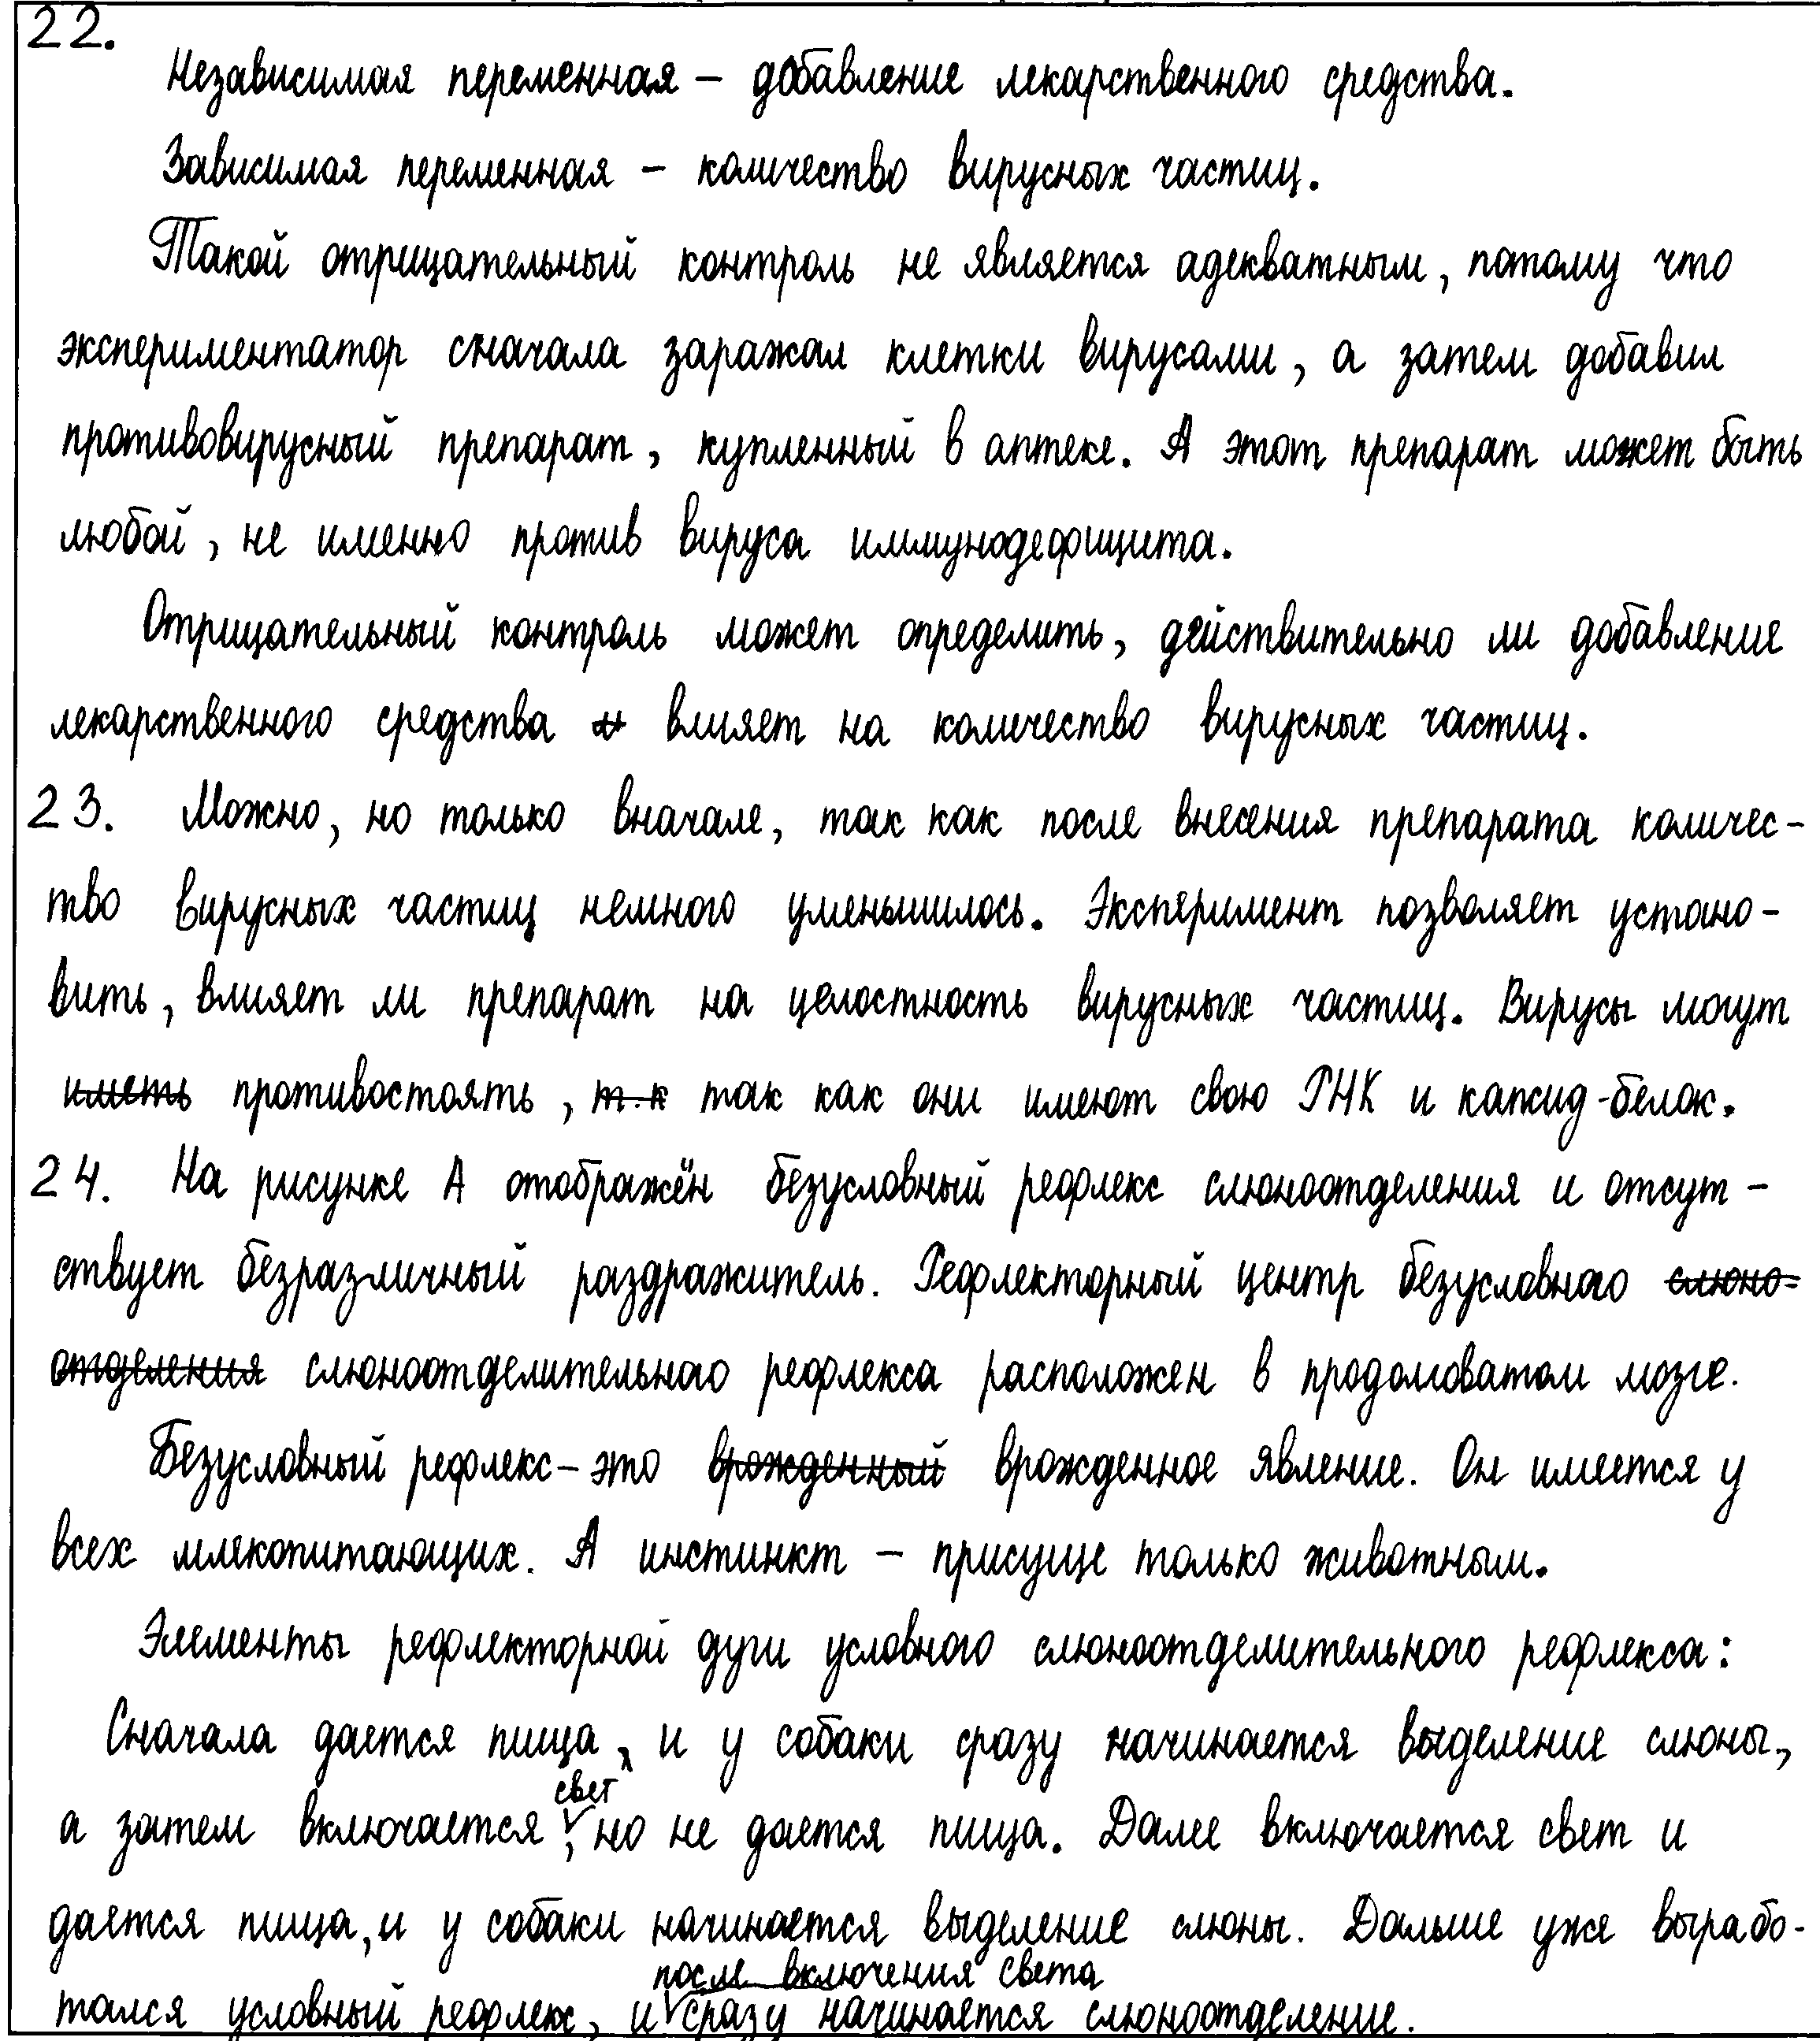 22.
Независимая переменная – добавление лекарственного средства.
Зависимая переменная – количество вирусных частиц.
Такой отрицательный контроль не является адекватным, потому что
экспериментатор сначала заражал клетки вирусами, а затем добавил
противовирусный препарат, купленный в аптеке. А этот препарат может быть
любой, не именно против вируса иммунодефицита.
Отрицательный контроль может определить, действительно ли добавление
лекарственного средства и влияет на количество вирусных частиц.
23. Можно, но только вначале, так как после внесения препарата количес-
тво вирусных частиц немного уменьшилось. Эксперимент позволяет устано-
вить, влияет ли препарат на целостность вирусных частиц. Вирусы могут
иметь противостоять, т.к так как они имеют свою РНК и капсид-белок.
24. На рисунке А отображён безусловный рефлекс слюноотделения и отсут-
ствует безразличный раздражитель. Рефлекторный центр безусловного слюно-
отделения слюноотделительного рефлекса расположен в продолговатом мозге.
Безусловный рефлекс – это врожденный врожденное явление. Он имеется у
всех млекопитающих. А инстинкт – присуще только животным.
Элементы рефлекторной дуги условного слюноотделительного рефлекса:
Сначала дается пища, и у собаки сразу начинается выделение слюны,
а затем включается свет, но не дается пища. Далее включается свет и
дается пища, и у собаки начинается выделение слюны. Дальше уже вырабо-
тался условный рефлекс, и после включения света сразу начинается слюноотделение.